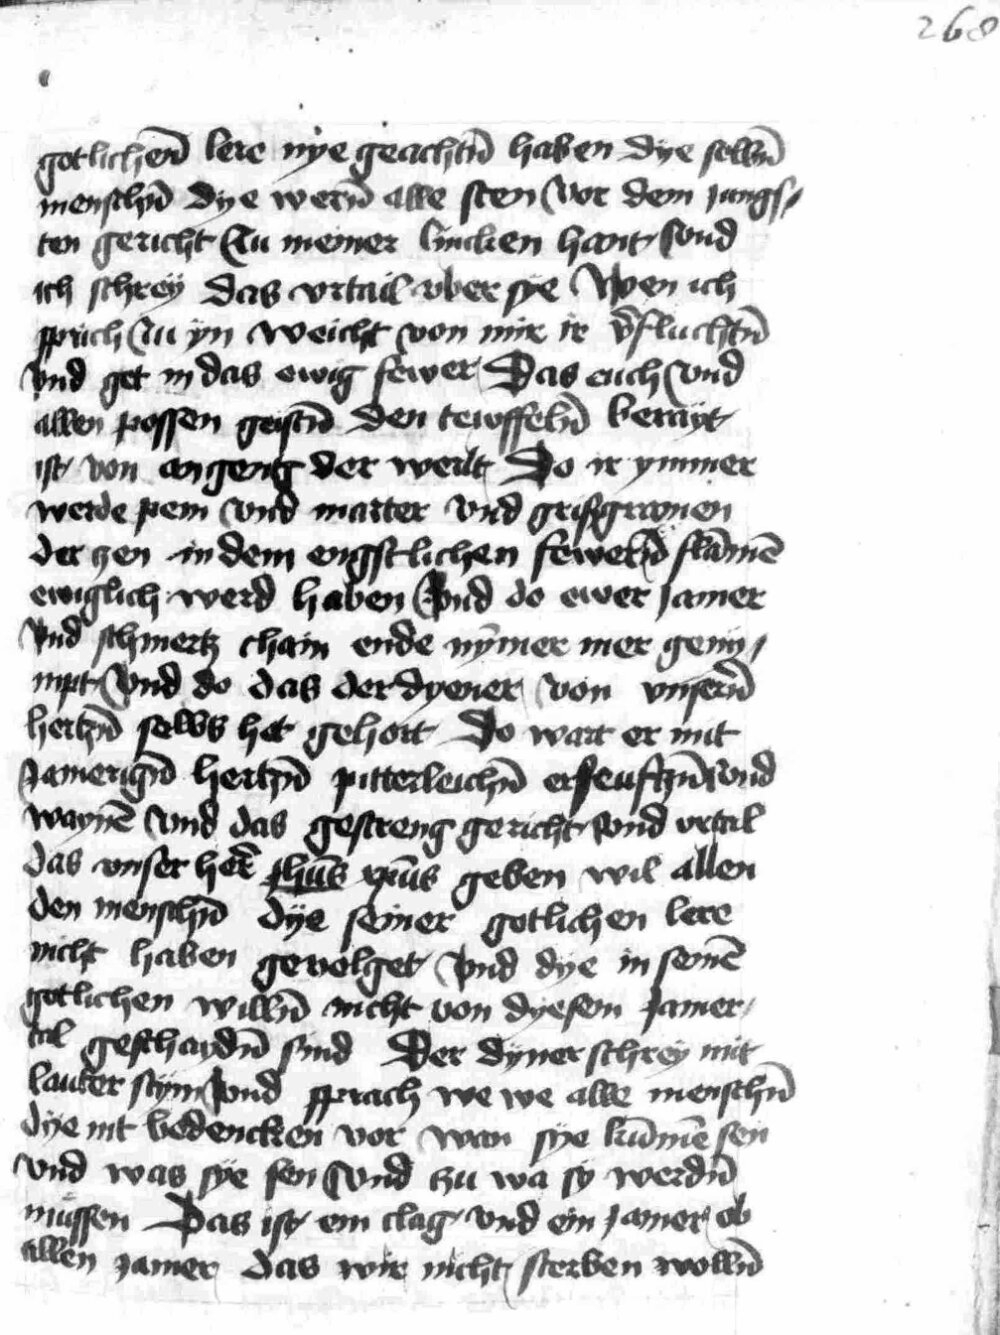 268
gotlichen̄ lere nye geachtn̄ haben dye selbn̄
menschn̄ dye wern̄ alle sten vor dem jungs/
ten gericht Zu meiner lincken hant vnd
ich schrey das vrtail vber sye Wen ich
sprich Zu yn weicht von mir ir v̄fluchtn̄
Vnd get in das ewig fewer Das euch Vnd
allen possen geistn̄ den tewffeln̄ berayt
ist von angeng der werlt Do ir ymmer
werde pein Vnd marter Vnd grißgramen
der zen in dem engstlichen fewern̄ flāmē
ewiglich werd haben Vnd do ewer Jamer
Vnd schmertz chain ende nȳmer mer genim/
mpt Vnd do das der dyener von vnsern̄
hertzn̄ selbs het gehort Do wart er mit
Jamerign̄ hertzn̄ pitterleichn̄ erseuftzn̄ vnd
waynē Vnd das gestreng gericht Vnd vrtail
das vnser her̄ jhūs xp̄us geben wil allen
den menschn̄ dye seiner gotlichen lere
nicht haben gevolget Vnd dye in seinē
gotlichen willn̄ nicht von dyesem Jamer/
tal geschaydn̄ sind Der dyner schrey mit
lauter stym Vnd sprach we we alle menschn̄
dye nit bedencken vor wan sye kūmē sen
Vnd was sye sen Vnd tzu wa sy werdn̄
mussen Das ist ein clag vnd ein Jamer ob
allen Jamer das wir nicht sterben wolln̄